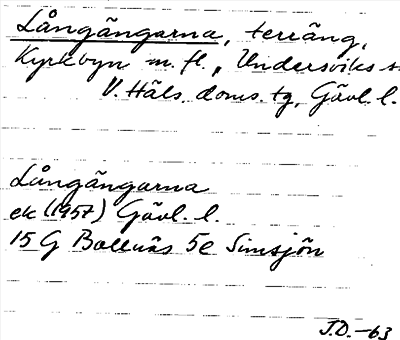 Långängarna, terräng,
Kyrkbyn m. fl., Undersviks s.
V. Häls. doms. tg, Gävl. l.
Långängarna
ek (1957) Gävl. l.
15 G Bollnäs 5e Simsjön
J.D. -63